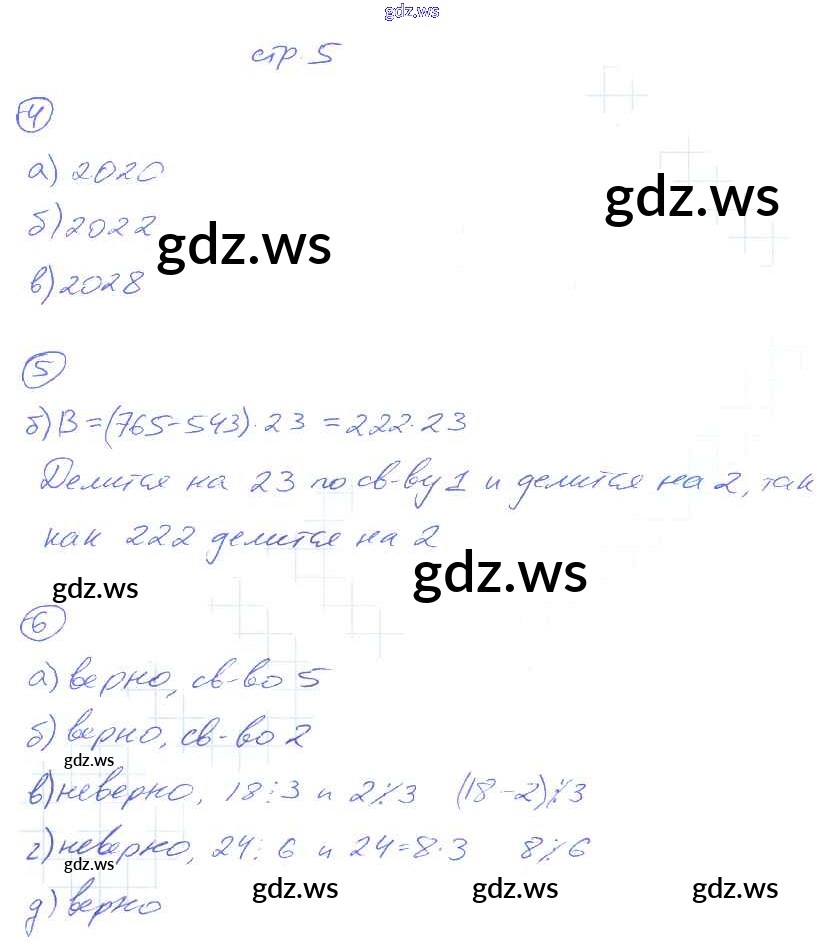 gdz.ws
стр. 5
4
а) 2020
gdz.ws
б) 2022
gdz.ws
в) 2028
5
б) В = (765-543)·23 = 222·23
Делится на 23 по св-ву 1 и делится на 2, так
как 222 делится на 2
gdz.ws
gdz.ws
6
а) верно, св-во 5
б) верно, св-во 2
gdz.ws
в) неверно, 18⋮3 и 2⋮̸3 (18-2)⋮̸3
г) неверно, 24⋮6 и 24=8·3 8⋮̸6
gdz.ws
gdz.ws gdz.ws gdz.ws
д) верно